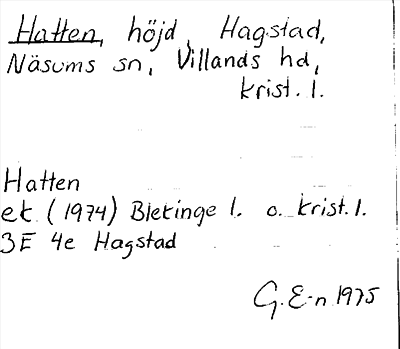 Hatten, höjd, Hagstad,
Näsums sn, Villands hd,
krist. l.
Hatten
ek (1974) Blekinge l. o. krist. l.
3E 4e Hagstad
G. E-n 1975